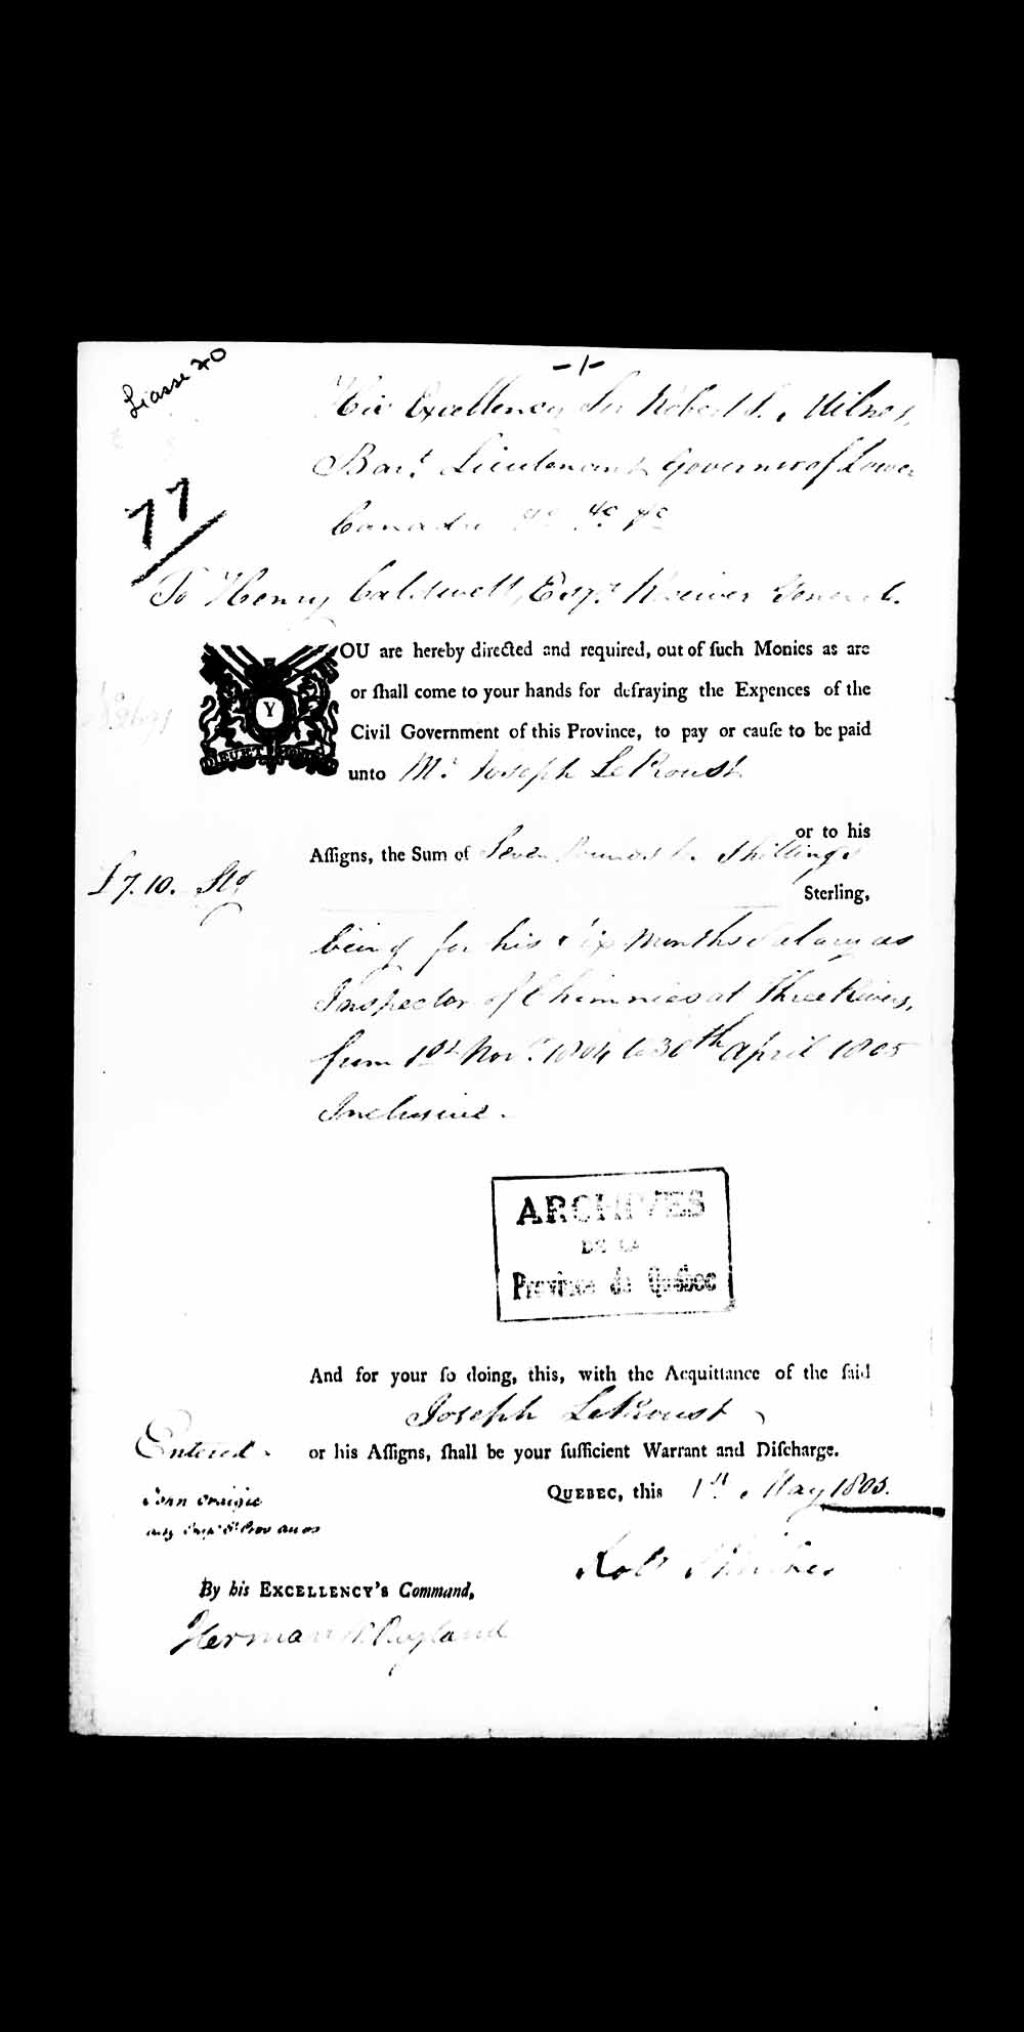 Liasse 20
-1-
His Excellency Sir Robert S. Milnes,
Bart. Lieutenant Governor of Lower
Canada &c &c &c
77
To Henry Caldwell, Esqr. Receiver General.
YOU are hereby directed and required, out of ſuch Monies as are
or ſhall come to your hands for defraying the Expences of the
Civil Government of this Province, to pay or cauſe to be paid
unto Mr. Joseph LeProust
or to his
Aſſigns, the Sum of Seven Pounds ten Shillings
£7.10. Stg
Sterling,
being for his six Months Salary as
Inspector of Chimnies at Three Rivers,
from 1st Novr. 1804 to 30th April 1805
Inclusive.
ARCHIVES
DE LA
Province de Québec
And for your ſo doing, this, with the Acquittance of the ſaid
Joseph LeProust
Entered.
or his Aſſigns, ſhall be your ſufficient Warrant and Diſcharge.
QUEBEC, this 1st. May 1805.
John Craigie
Robt S Milnes
By his EXCELLENCY's Command,
Herman W. Ryland